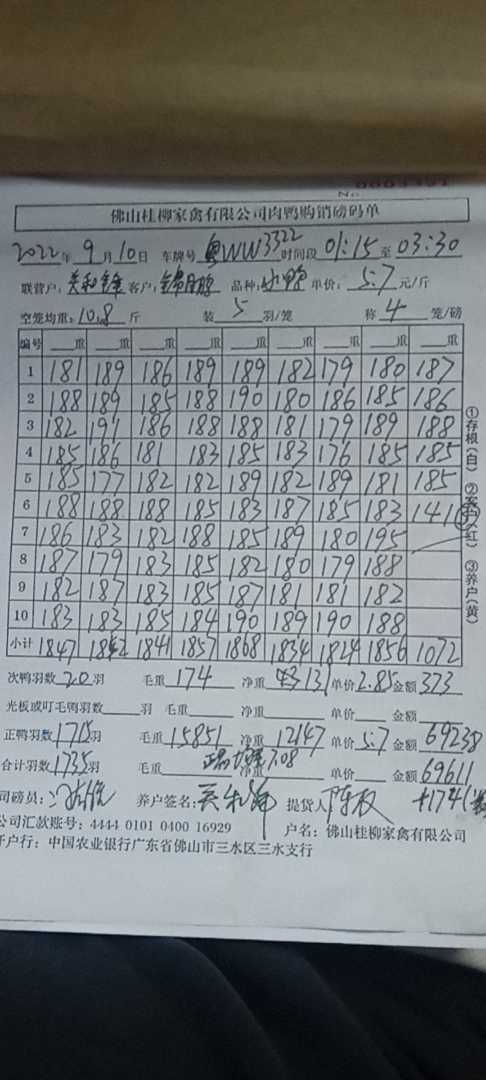 No
佛山桂柳家禽有限公司肉鸭购销磅码单
2022年 9月 10日 车牌号 粤WW3322 时间段 01:15 至 03:30
联营户: 客户: 品种: 水鸭 单价: 5.7 元/斤
空笼均重: 10.8 斤 装 5 羽/笼 称 4 笼/磅
编号 重 重 重 重 重 重 重 重 重
1 181 189 186 189 189 182 179 180 187
2 188 189 185 188 190 180 186 185 186
3 182 191 186 188 188 181 179 189 188
4 185 186 181 183 185 183 176 185 185
5 185 177 182 182 189 182 189 181 185
6 188 188 188 185 183 187 185 183 141
7 186 183 182 188 185 189 180 195
8 187 179 183 185 182 180 179 188
9 182 187 183 185 187 181 181 182
10 183 183 185 184 190 189 190 188
小计 1847 1852 1841 1857 1868 1834 1824 1856 1072
次鸭羽数 20 羽 毛重 174 净重 131 单价 2.85 金额 373
光板或叮毛鸭羽数 羽 毛重 净重 单价 金额
正鸭羽数 1715 羽 毛重 15851 净重 12147 单价 5.7 金额 69238
合计羽数 1735 羽 毛重 净重 7.08 单价 金额 69611
司磅员: 养户签名: 提货人 +1741
公司汇款账号: 4444 0101 0400 16929 户名: 佛山桂柳家禽有限公司
开户行: 中国农业银行广东省佛山市三水区三水支行
①存根(白) ②客户(红) ③养户(黄)